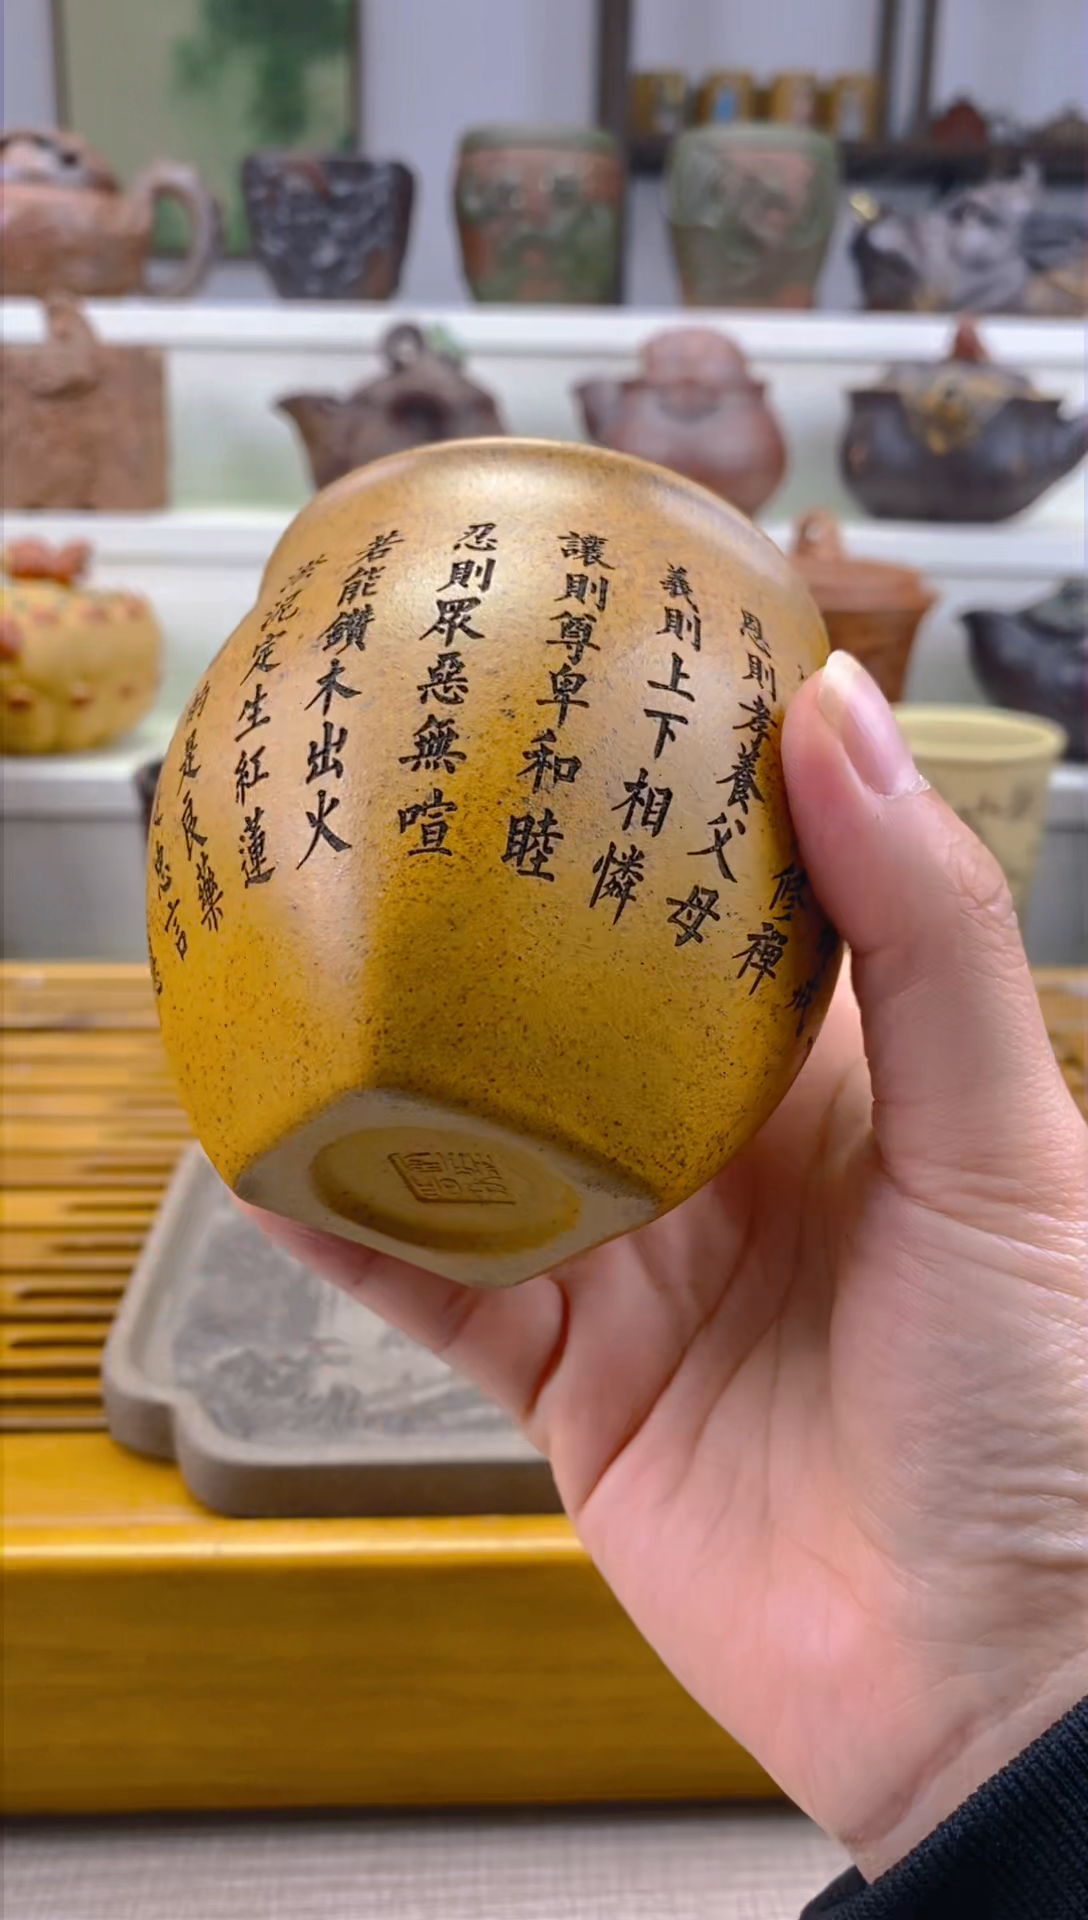 修禪
恩則孝養父母
義則上下相憐
讓則尊卑和睦
忍則眾惡無喧
若能鑽木出火
淤泥定生紅蓮
的是良藥
忠言